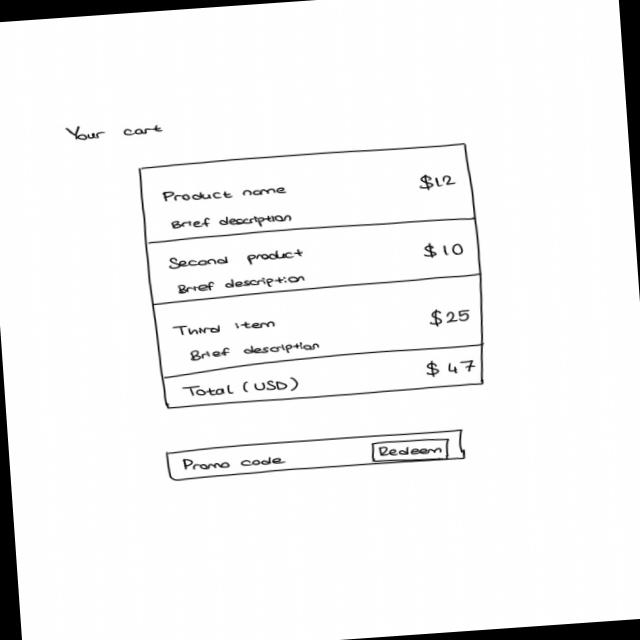 Your cart
Product name $12
Brief description
Second product $10
Brief description
Third item $25
Brief description
Total (USD) $47
Promo code Redeem